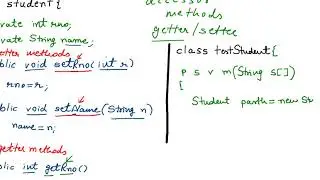 student{
vate int rno;
ivate String name;
etter methods
blic void setRno(int r)
rno=r;
ublic void setName(String n)
name=n;
getter methods
blic int getRno()
accessor
methods
getter/setter
class testStudent{
p s v m(String s[])
{
Student parth=new St